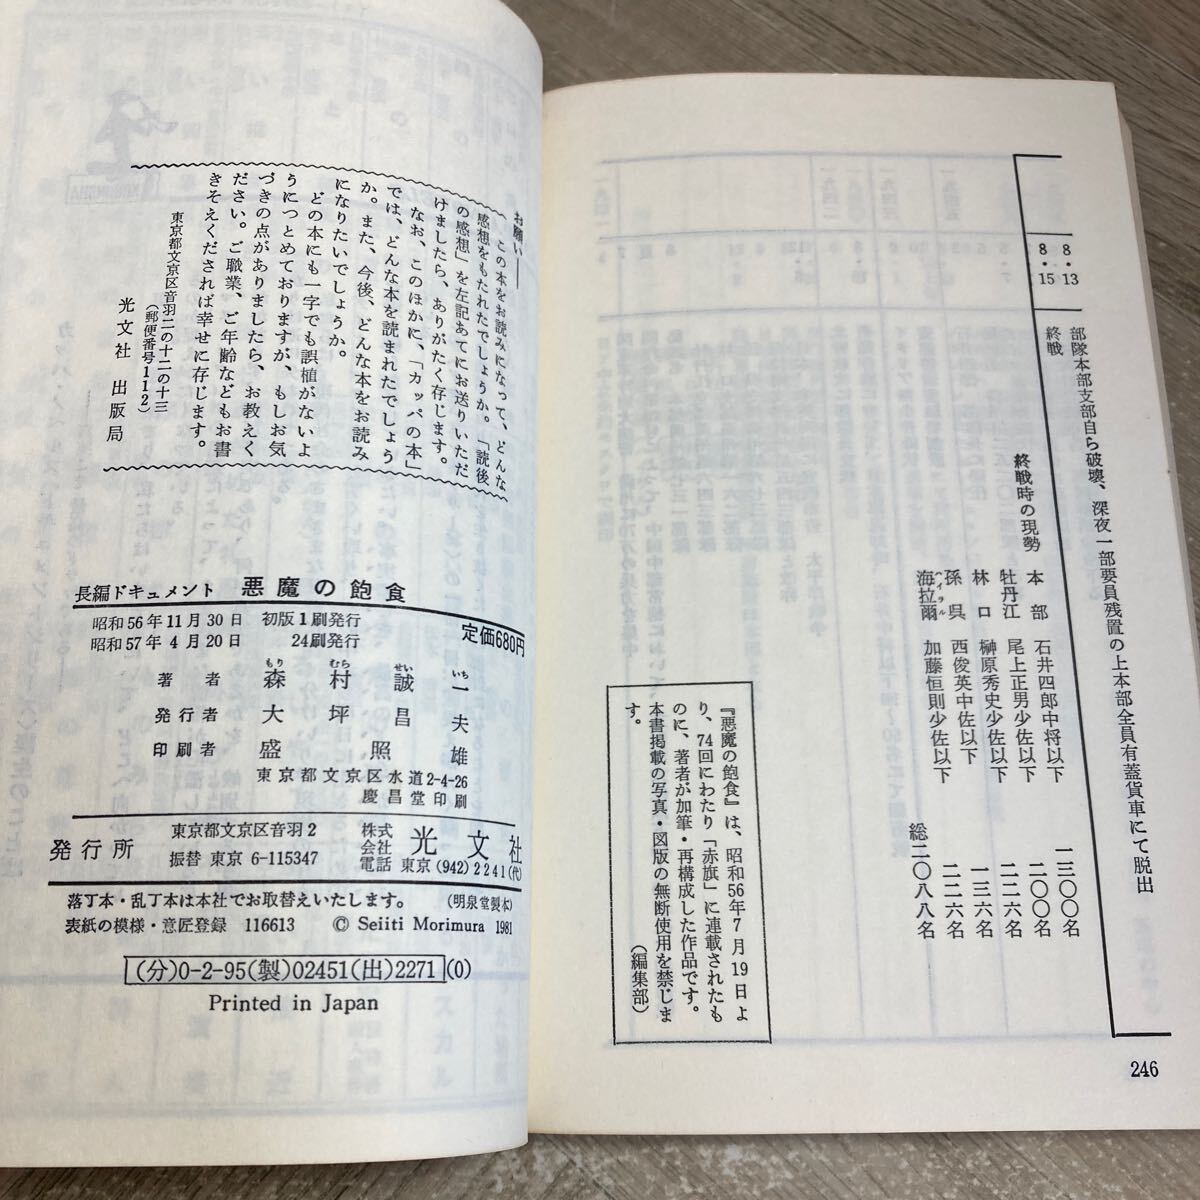 8・13
部隊本部支部自ら破壊、深夜一部要員残置の上本部全員有蓋貨車にて脱出
8・15
終戦
終戦時の現勢
本部 石井四郎中将以下 一三〇〇名
牡丹江 尾上正男少佐以下 二〇〇名
林口 榊原秀史少佐以下 二二六名
孫呉 西俊英中佐以下 一三六名
海拉爾 加藤恒則少佐以下 二二六名
ハイラル
総二〇八八名
『悪魔の飽食』は、昭和56年7月19日よ
り、74回にわたり「赤旗」に連載されたも
のに、著者が加筆・再構成した作品です。
本書掲載の写真・図版の無断使用を禁じま
す。
(編集部)
246
お願い――
この本をお読みになって、どんな
感想をもたれたでしょうか。「読後
の感想」を左記あてにお送りいただ
けましたら、ありがたく存じます。
なお、このほかに、「カッパの本」
では、どんな本を読まれたでしょう
か。また、今後、どんな本をお読み
になりたいでしょうか。
どの本にも一字でも誤植がないよ
うにつとめておりますが、もしお気
づきの点がありましたら、お教えく
ださい。ご職業、ご年齢などもお書
きそえくだされば幸せに存じます。
東京都文京区音羽二の十二の十三
(郵便番号112)
光文社 出版局
長編ドキュメント 悪魔の飽食
定価680円
昭和56年11月30日 初版1刷発行
昭和57年4月20日 24刷発行
もり むら せい いち
著者 森村誠一
発行者 大坪昌夫
印刷者 盛照雄
東京都文京区水道2-4-26
慶昌堂印刷
発行所
東京都文京区音羽2
振替 東京 6-115347
株式会社 光文社
電話 東京(942)2241(代)
落丁本・乱丁本は本社でお取替えいたします。 (明泉堂製本)
表紙の模様・意匠登録 116613 © Seiiti Morimura 1981
(分)0-2-95(製)02451(出)2271(0)
Printed in Japan